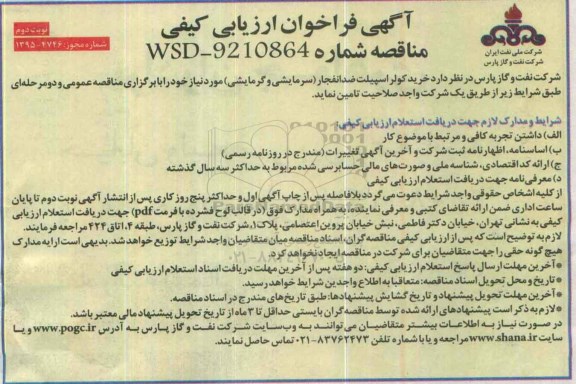 آگهی فراخوان ارزیابی کیفی
مناقصه شماره WSD-9210864
نوبت دوم
شماره مجوز: ۲۷۲۶-۱۳۹۵
شرکت ملی نفت ایران
شرکت نفت و گاز پارس
شرکت نفت و گاز پارس در نظر دارد خرید کولر اسپیلت ضدانفجار (سرمایشی و گرمایشی) مورد نیاز خود را با برگزاری مناقصه عمومی و دو مرحله‌ای
طبق شرایط زیر از طریق یک شرکت واجد صلاحیت تامین نماید.
شرایط و مدارک لازم جهت دریافت استعلام ارزیابی کیفی
الف) داشتن تجربه کافی و مرتبط با موضوع کار
ب) اساسنامه، اظهارنامه ثبت شرکت و آخرین آگهی تغییرات (مندرج در روزنامه رسمی)
ج) ارائه کد اقتصادی، شناسه ملی و صورت‌های مالی حسابرسی شده مربوط به حداکثر سه سال گذشته
د) معرفی‌نامه جهت دریافت استعلام ارزیابی کیفی
از کلیه اشخاص حقوقی واجد شرایط دعوت می‌گردد بلافاصله پس از چاپ آگهی اول و حداکثر پنج روز کاری پس از انتشار آگهی نوبت دوم تا پایان
ساعت اداری ضمن ارائه تقاضای کتبی و معرفی نماینده، به همراه مدارک فوق (در قالب لوح فشرده با فرمت pdf) جهت دریافت استعلام ارزیابی
کیفی به نشانی تهران، خیابان دکتر فاطمی، نبش خیابان پروین اعتصامی، پلاک ۱، شرکت نفت و گاز پارس، طبقه ۴، اتاق ۴۲۴ مراجعه فرمایند.
لازم به توضیح است که پس از ارزیابی کیفی مناقصه‌گران، اسناد مناقصه میان متقاضیان واجد شرایط توزیع خواهد شد. بدیهی است ارایه مدارک
هیچ گونه حقی را جهت متقاضیان برای شرکت در مناقصه ایجاد نخواهد کرد
*آخرین مهلت ارسال پاسخ استعلام ارزیابی کیفی: دو هفته پس از آخرین مهلت دریافت اسناد استعلام ارزیابی کیفی
*تاریخ و محل تحویل اسناد مناقصه: متعاقبا به اطلاع واجدین شرایط خواهد رسید.
*آخرین مهلت تحویل پیشنهاد و تاریخ گشایش پیشنهادها: طبق تاریخ‌های مندرج در اسناد مناقصه.
*لازم به ذکر است پیشنهادهای ارائه شده توسط مناقصه‌گران بایستی حداقل تا ۳ ماه از تاریخ تحویل پیشنهاد مالی معتبر باشد.
در صورت نیاز به اطلاعات بیشتر متقاضیان می‌توانند به وب‌سایت شرکت نفت و گاز پارس به آدرس www.pogc.ir و یا
سایت www.shana.ir مراجعه و یا با شماره تلفن ۸۳۷۶۲۴۷۳-۰۲۱ تماس حاصل نمایند.